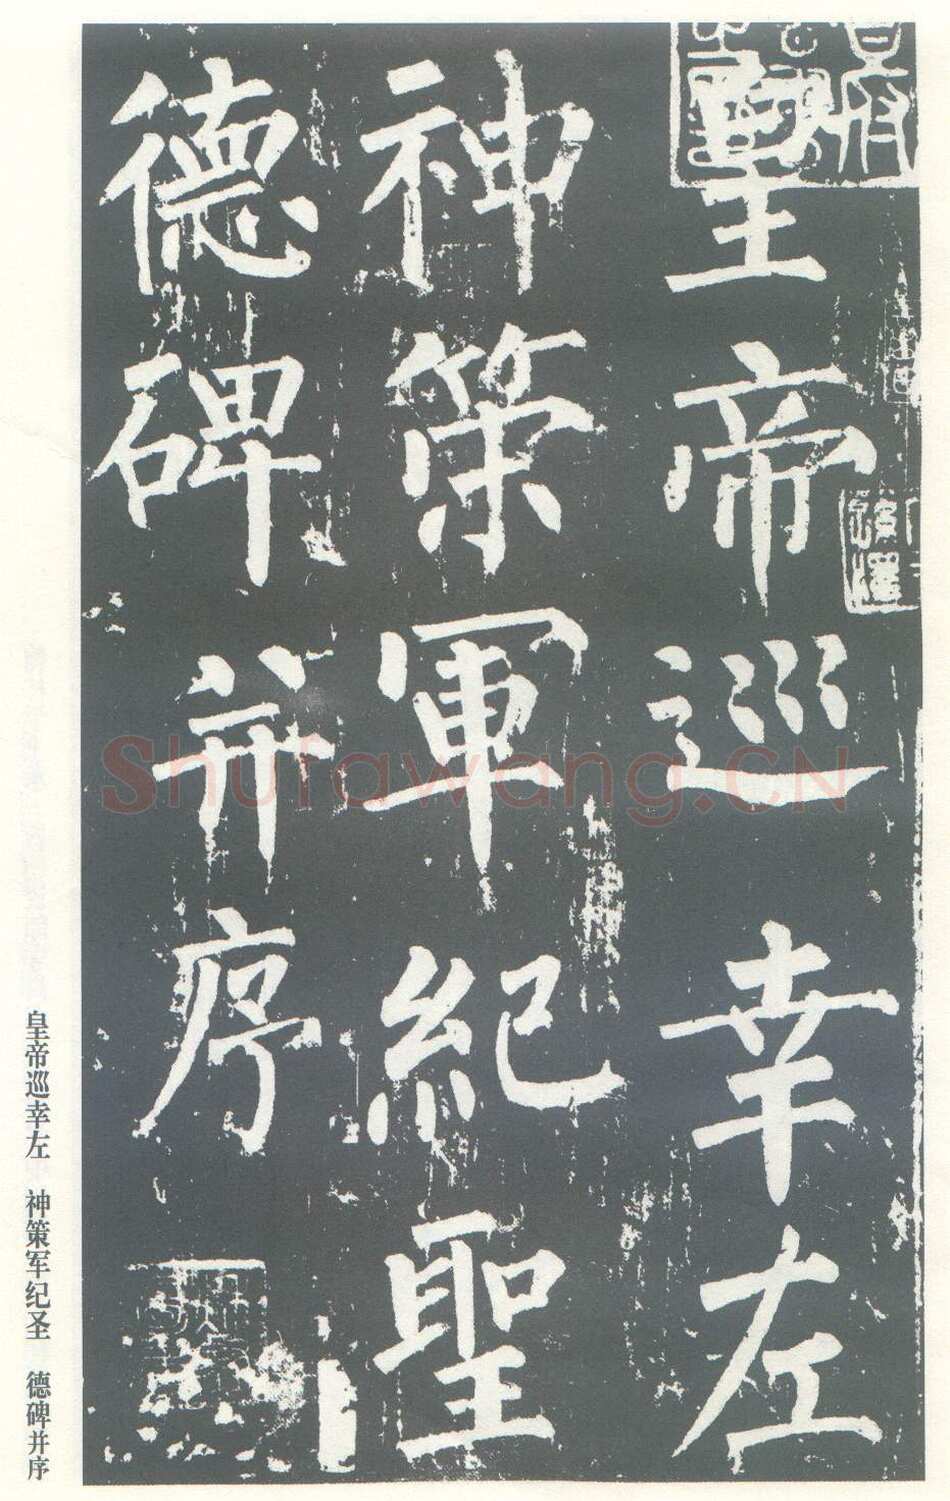 皇帝巡幸左
神策軍紀聖
德碑并序
皇帝巡幸左 神策军纪圣 德碑并序
Shufawang.CN